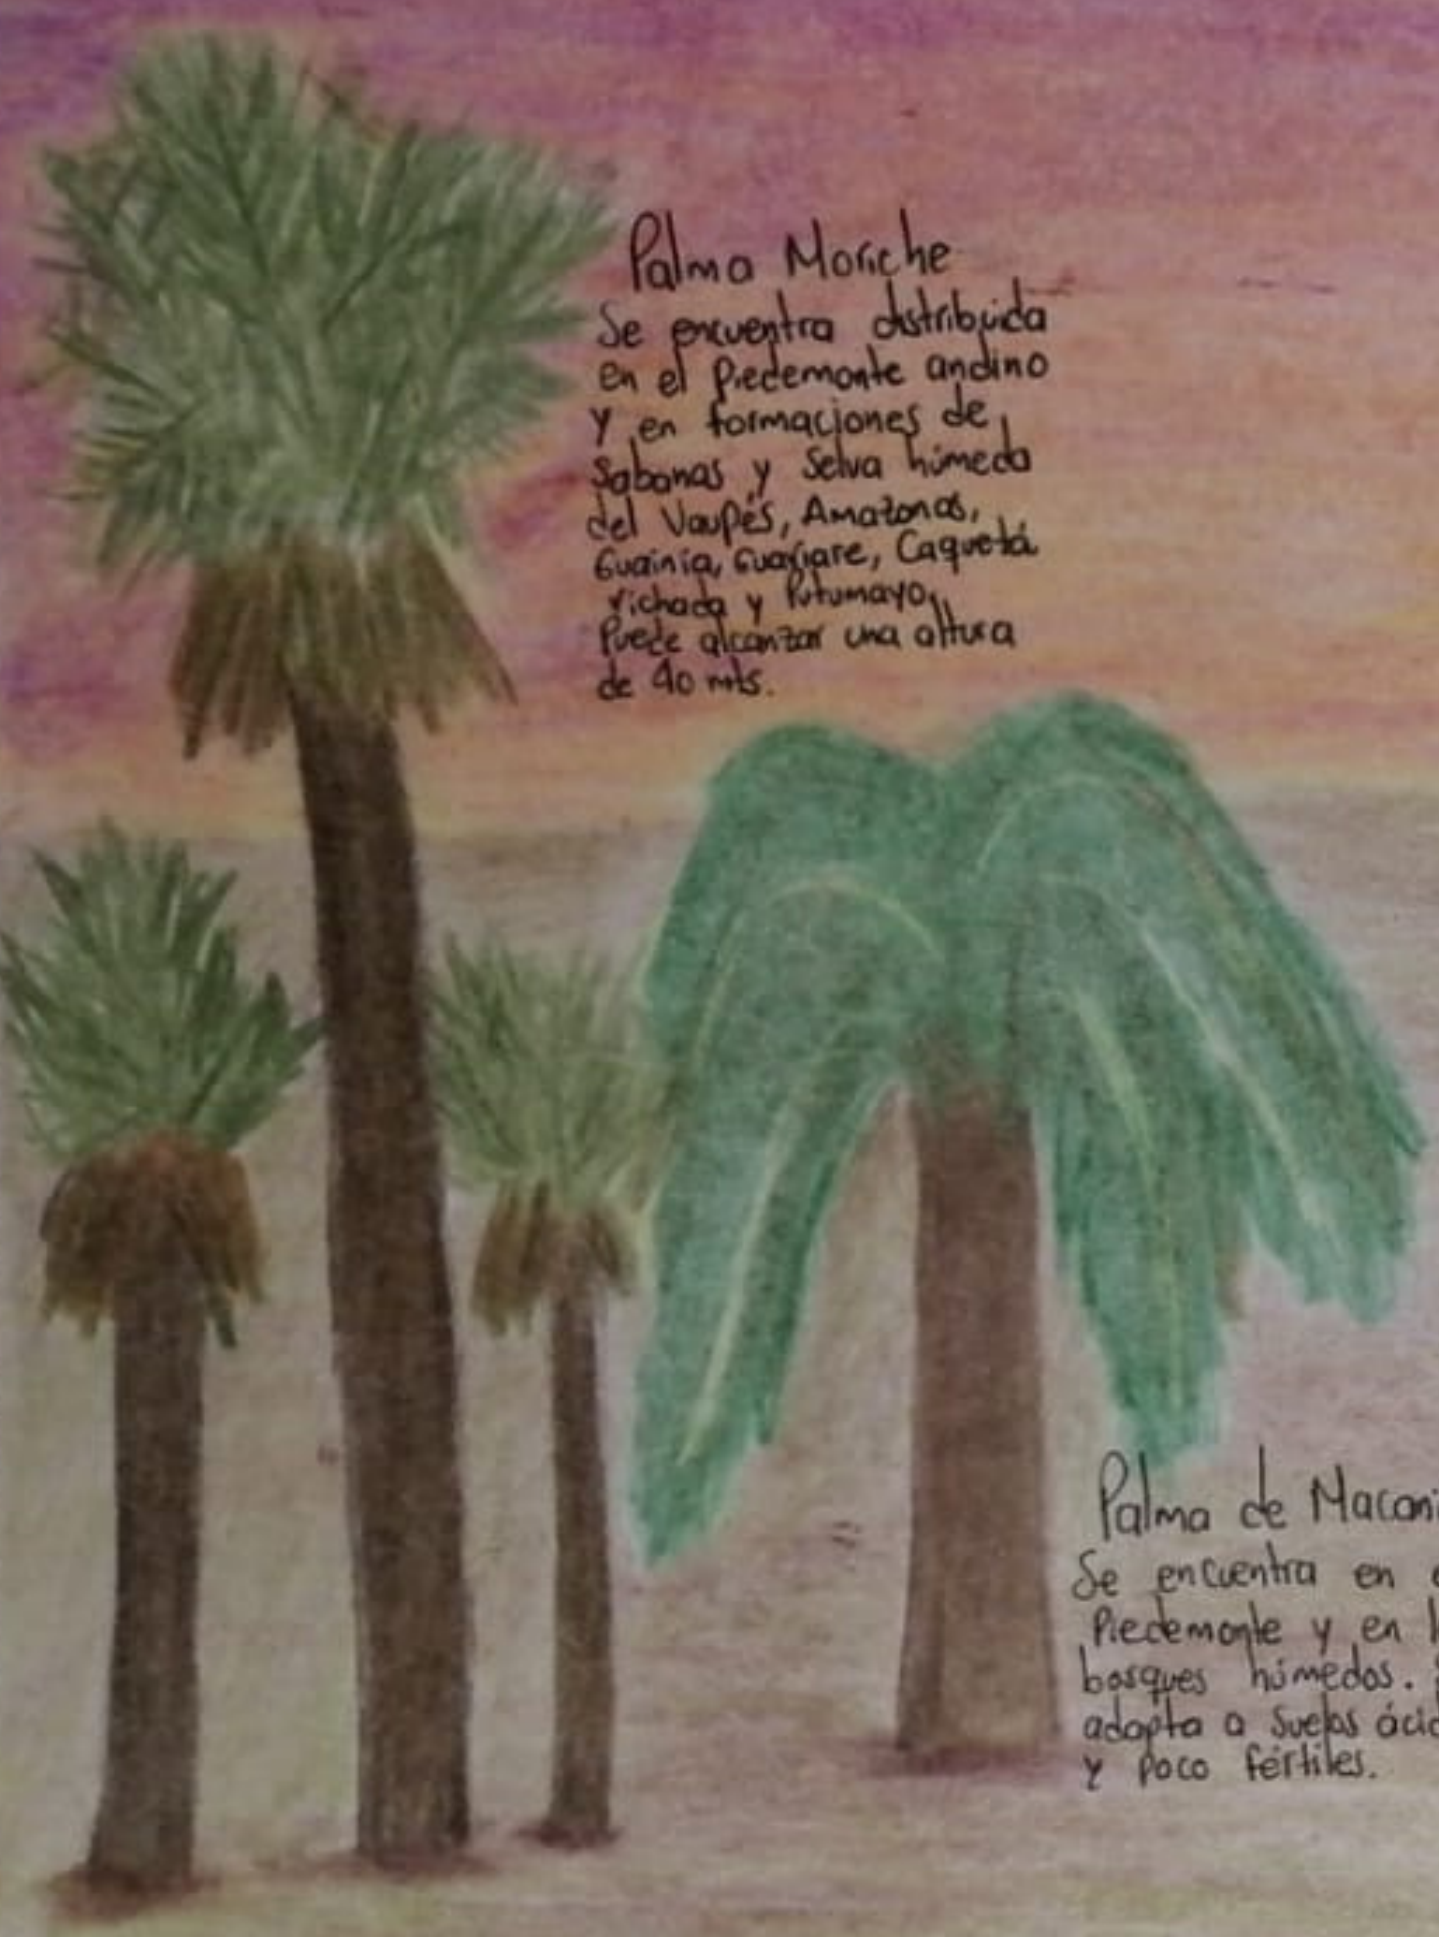 Palma Moriche
Se encuentra distribuida
en el Piedemonte andino
y en formaciones de
Sabanas y Selva húmeda
del Vaupés, Amazonas,
Guainía, Guaviare, Caquetá
Vichada y Putumayo.
Puede alcanzar una altura
de 40 mts.
Palma de
Se encuentra en
Piedemonte y en
bosques húmedos.
adapta a suelos
y poco fértiles.